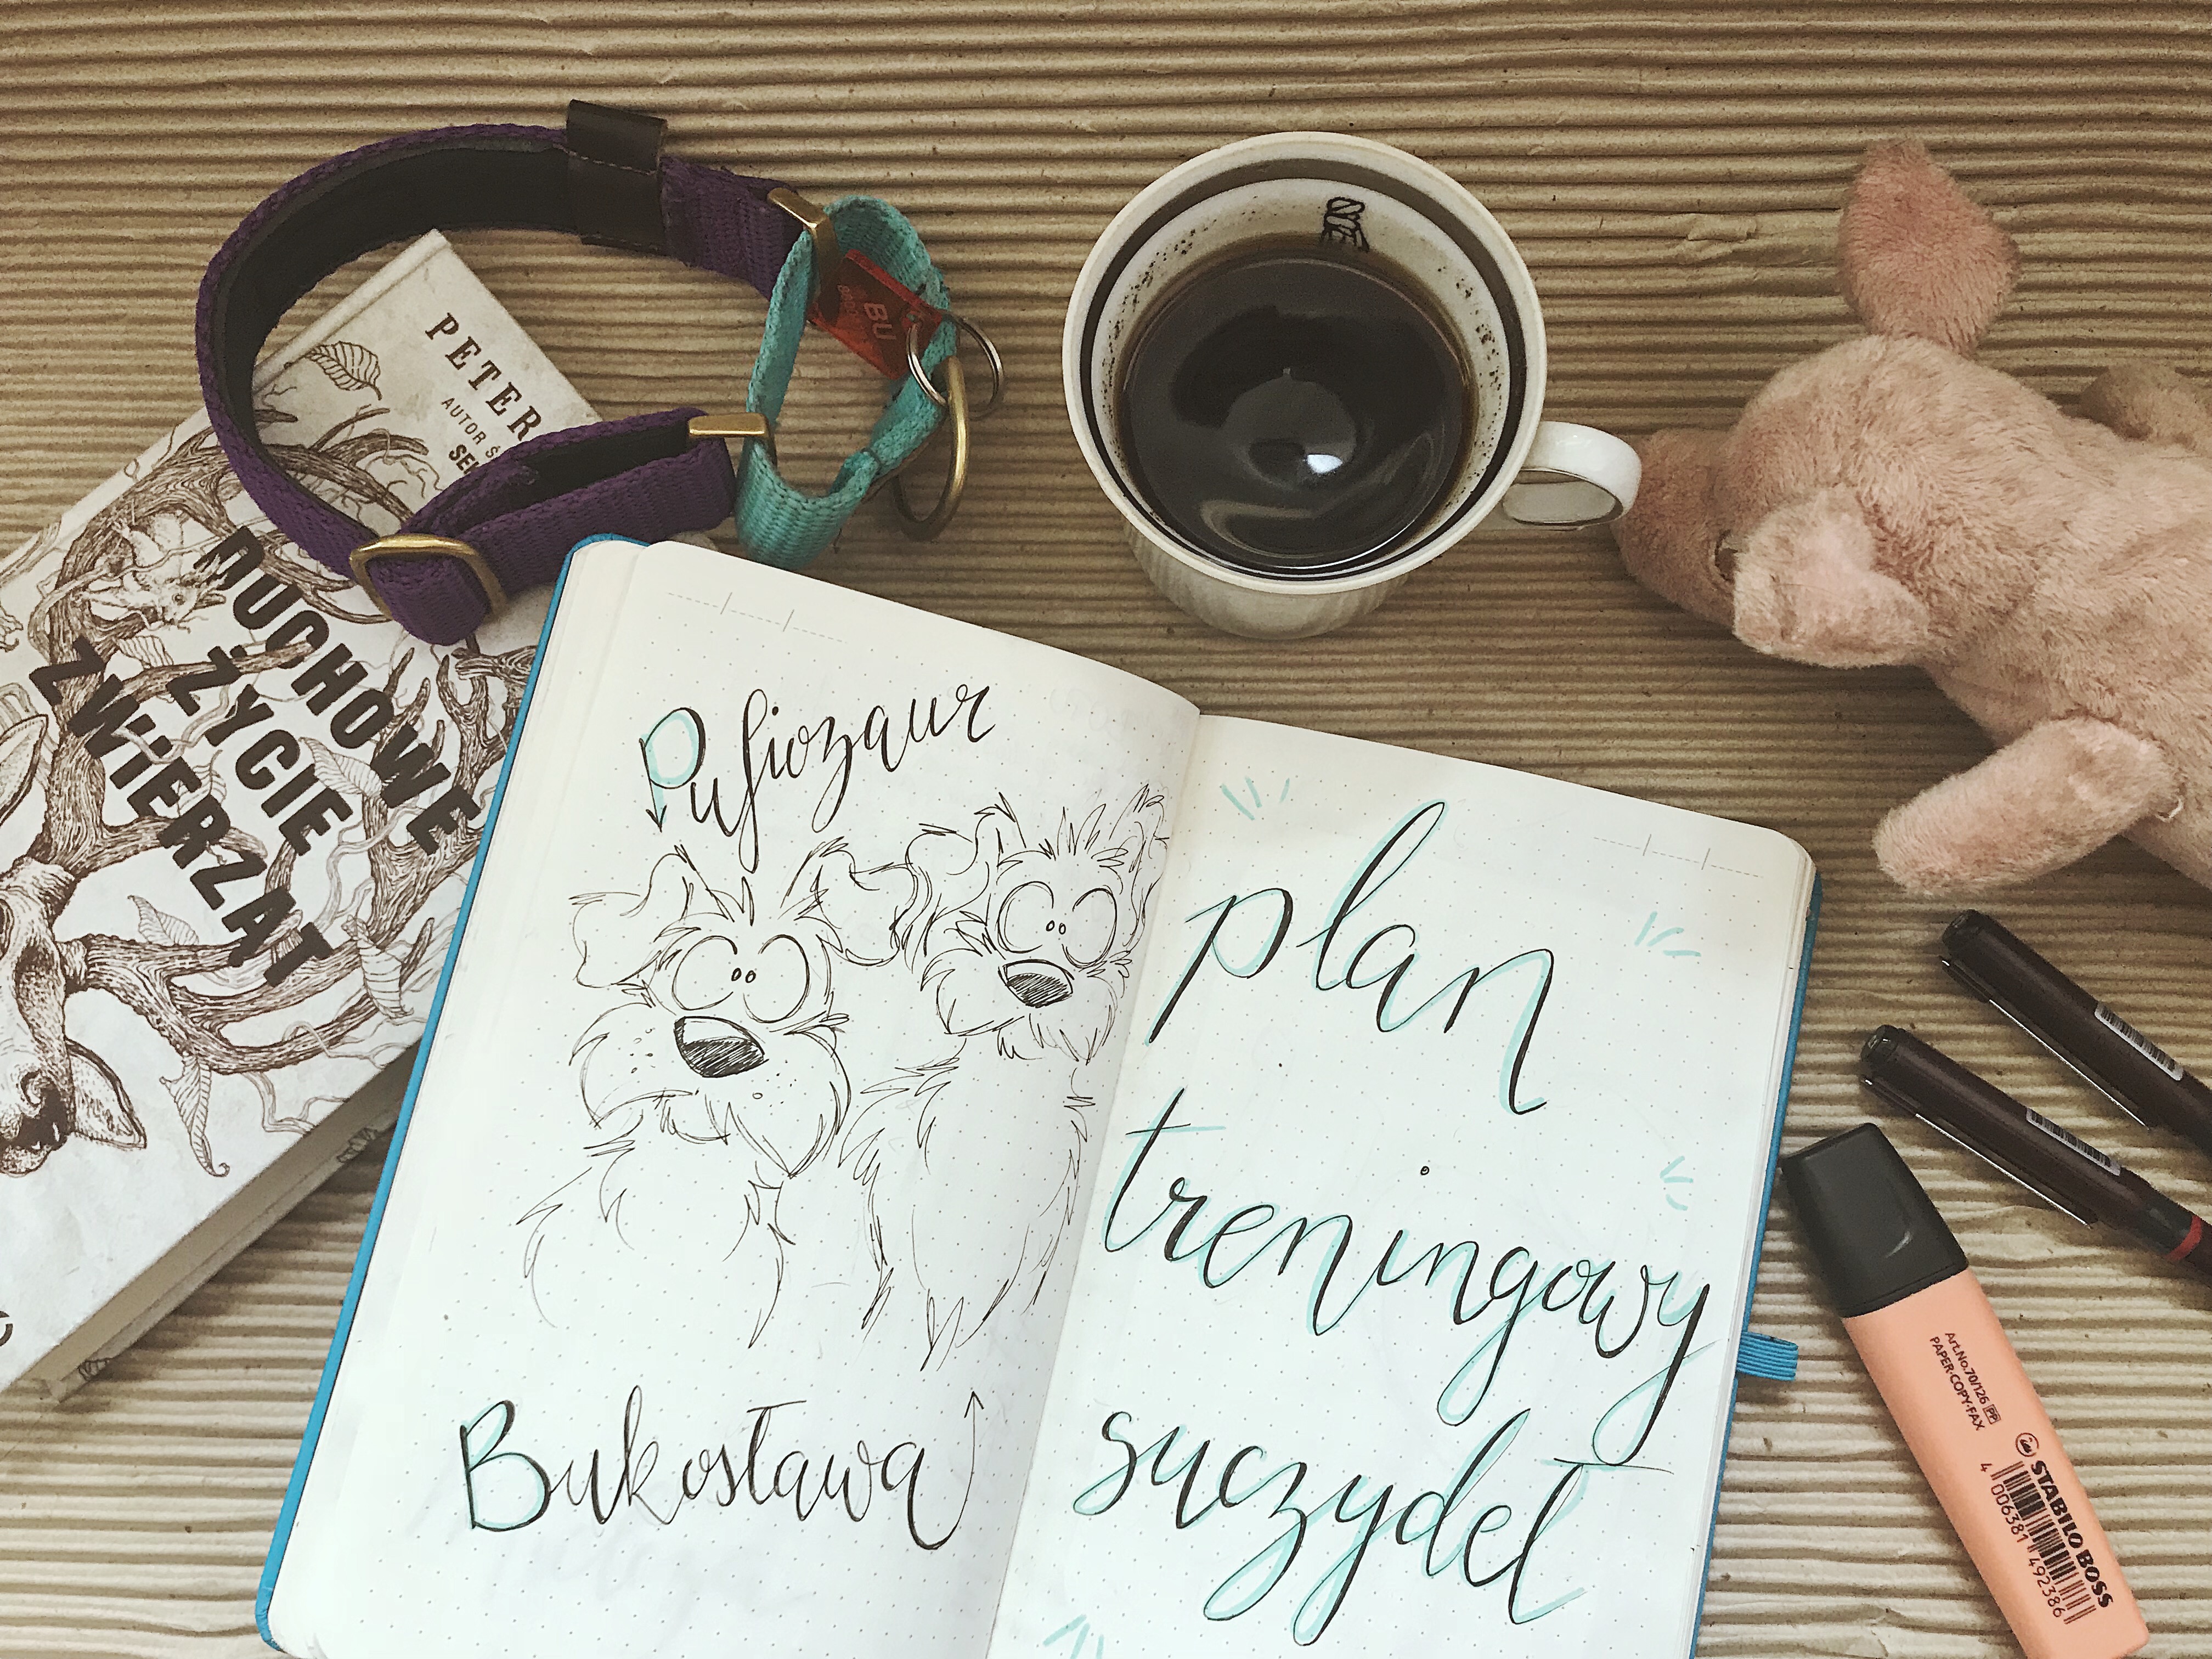 PETER
AUTOR
DUCHOWE
ŻYCIE
ZWIERZĄT
BU
Pufiozaur
Bukosława
plan
treningowy
suczydeł
Art.No.70/126 PP
PAPER·COPY·FAX
STABILO BOSS
4 006381 492386